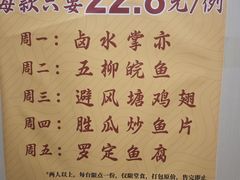 每款只要22.8元/例
周一：卤水掌亦
周二：五柳皖鱼
周三：避风塘鸡翅
周四：胜瓜炒鱼片
周五：罗定鱼腐
*两人以上，每台限点一份，仅限堂食，打包原价，售完即止